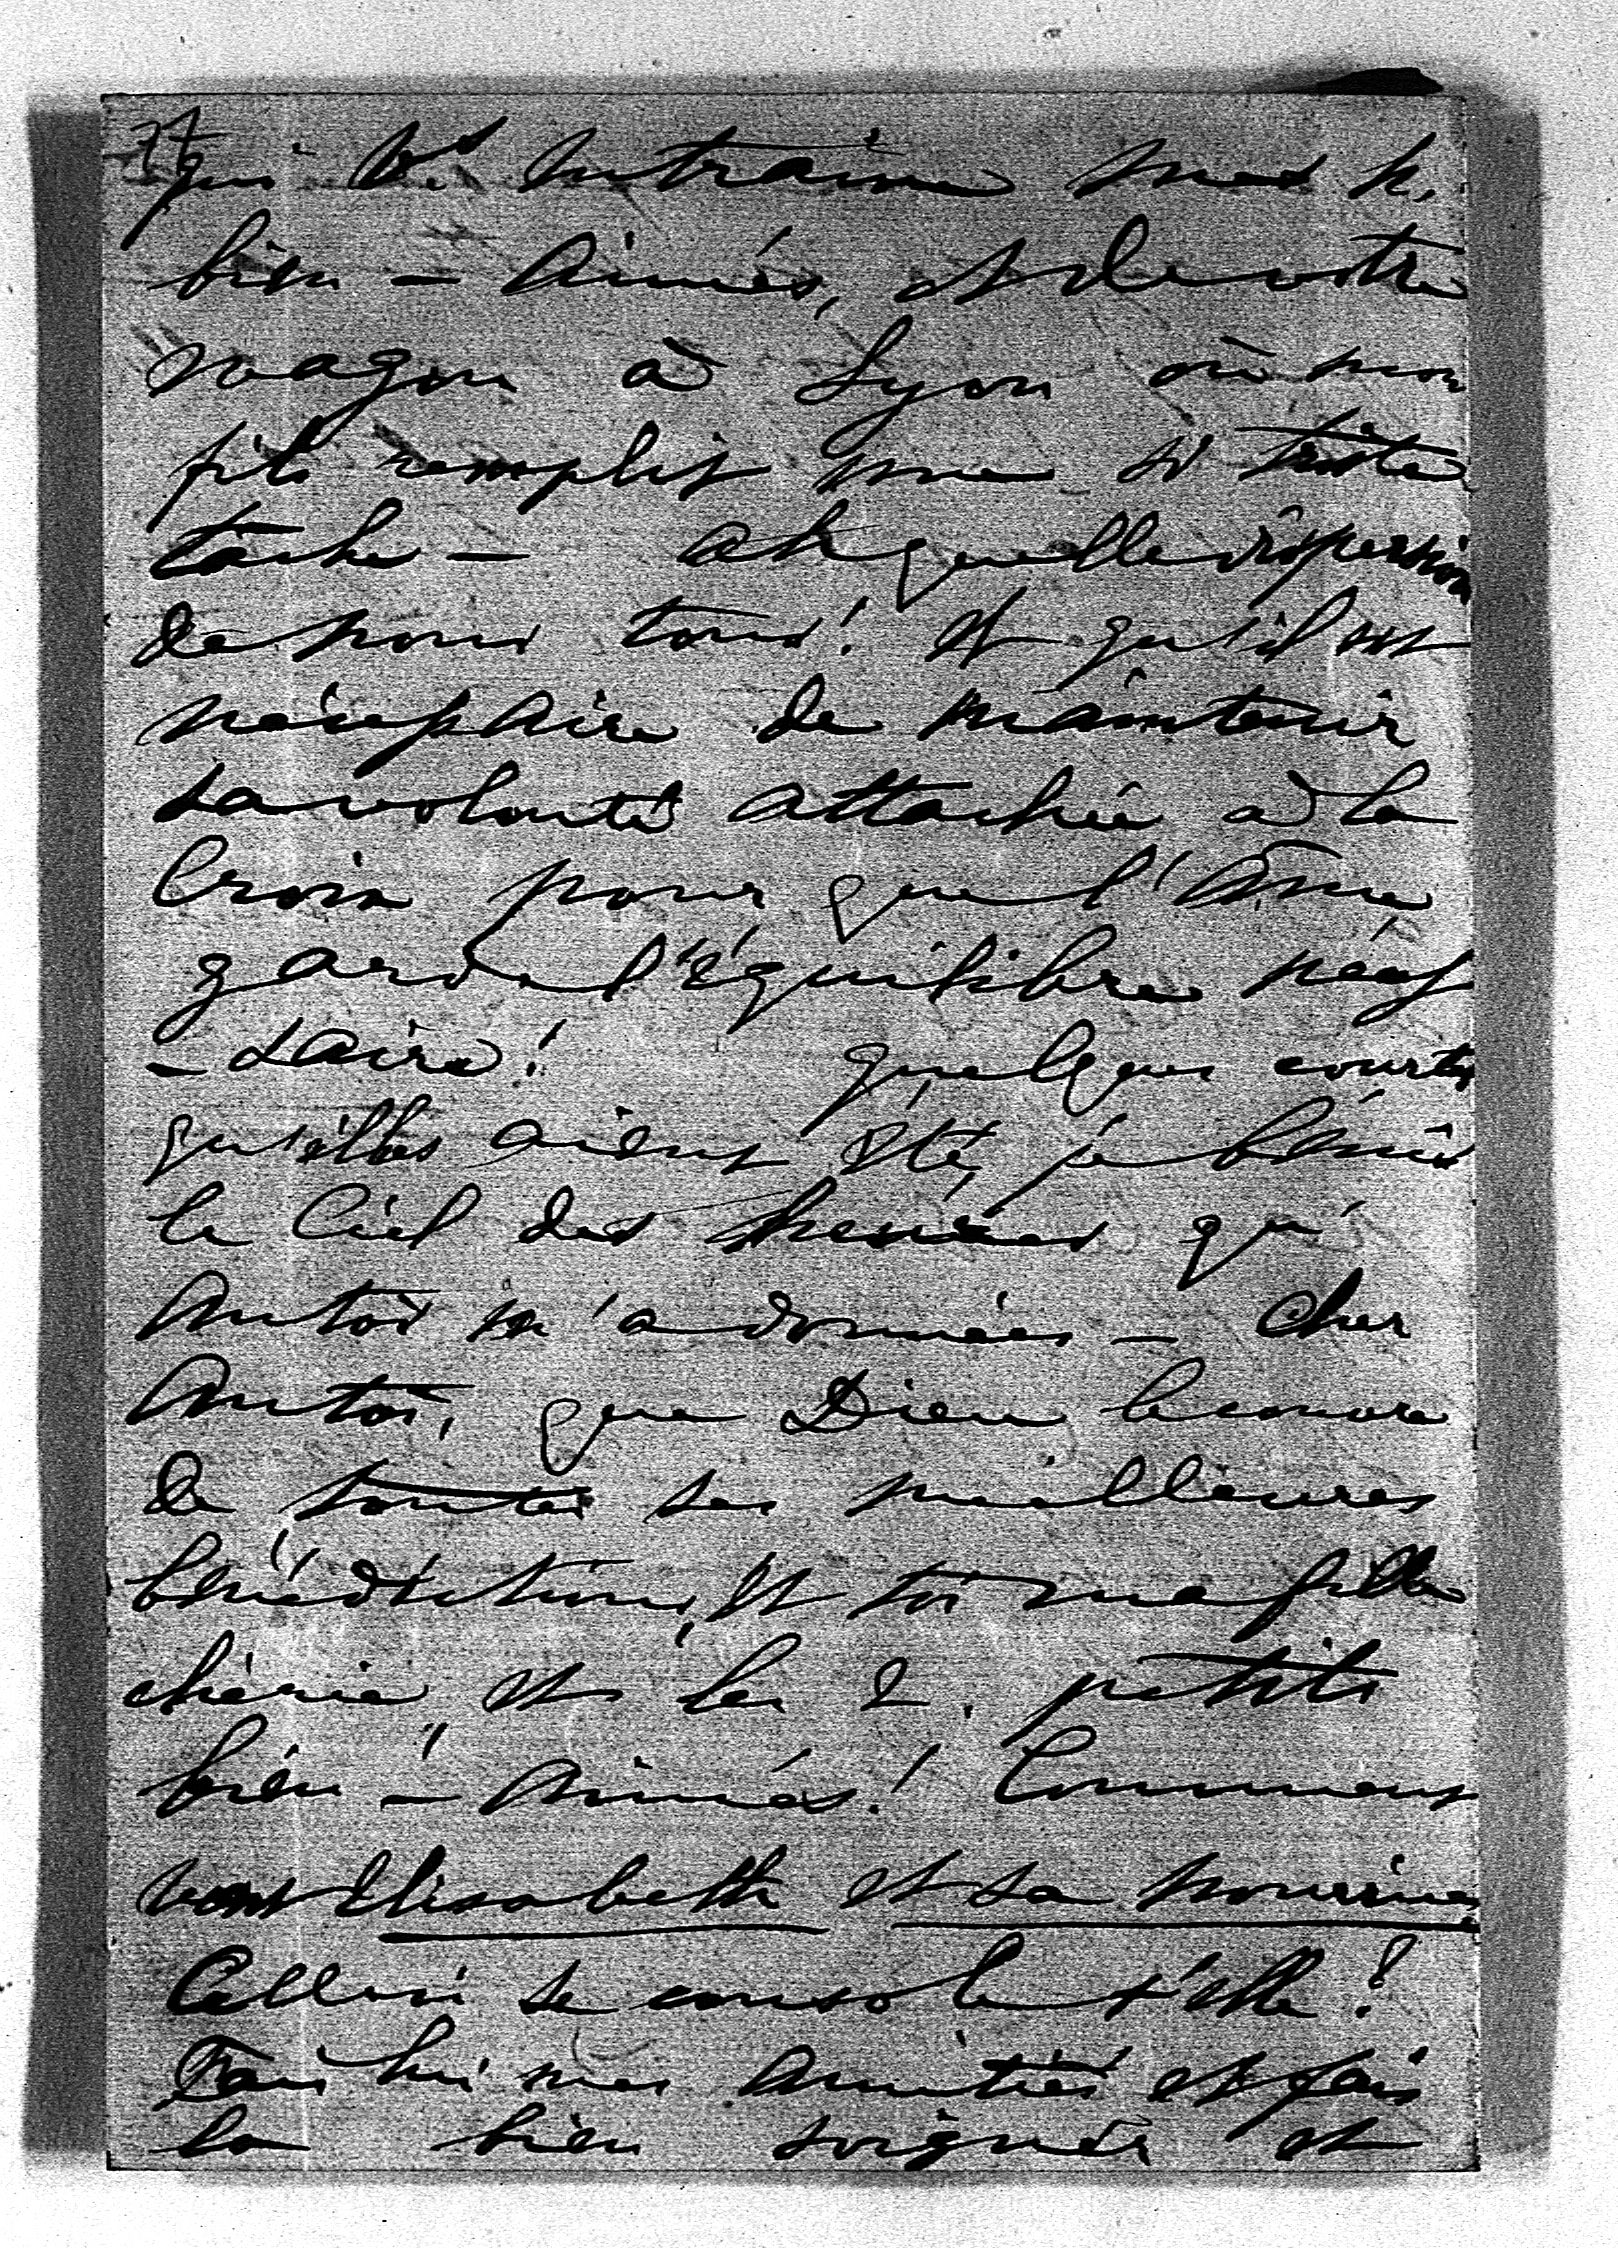 77
qui vs entraine mes p.
bien-aimés, et de votre
wagon à Lyon où mon
fils remplit une si triste
tache — ah quelle dispersion
de nous tous! et qu'il est
nécessaire de maintenir
sa volonté attachée à la
Croix pour que l'âme
garde l'équilibre néces
-saire! quelques courtes
qu'elles aient été, je bénis
le Ciel des heures qu'
Antoi m'a données — cher
Antoi, que Dieu le couvre
de toutes ses meilleures
bénédictions, et toi ma fille
chérie, et les 2 petits
bien-aimés! Comment
vont Elisabeth et sa nourrice
Celle-ci se console t'elle?
Fais lui mes amitiés et fais
la bien soigner et